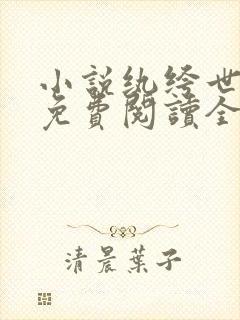 小說纨绔世
免費閱讀全
清晨葉子